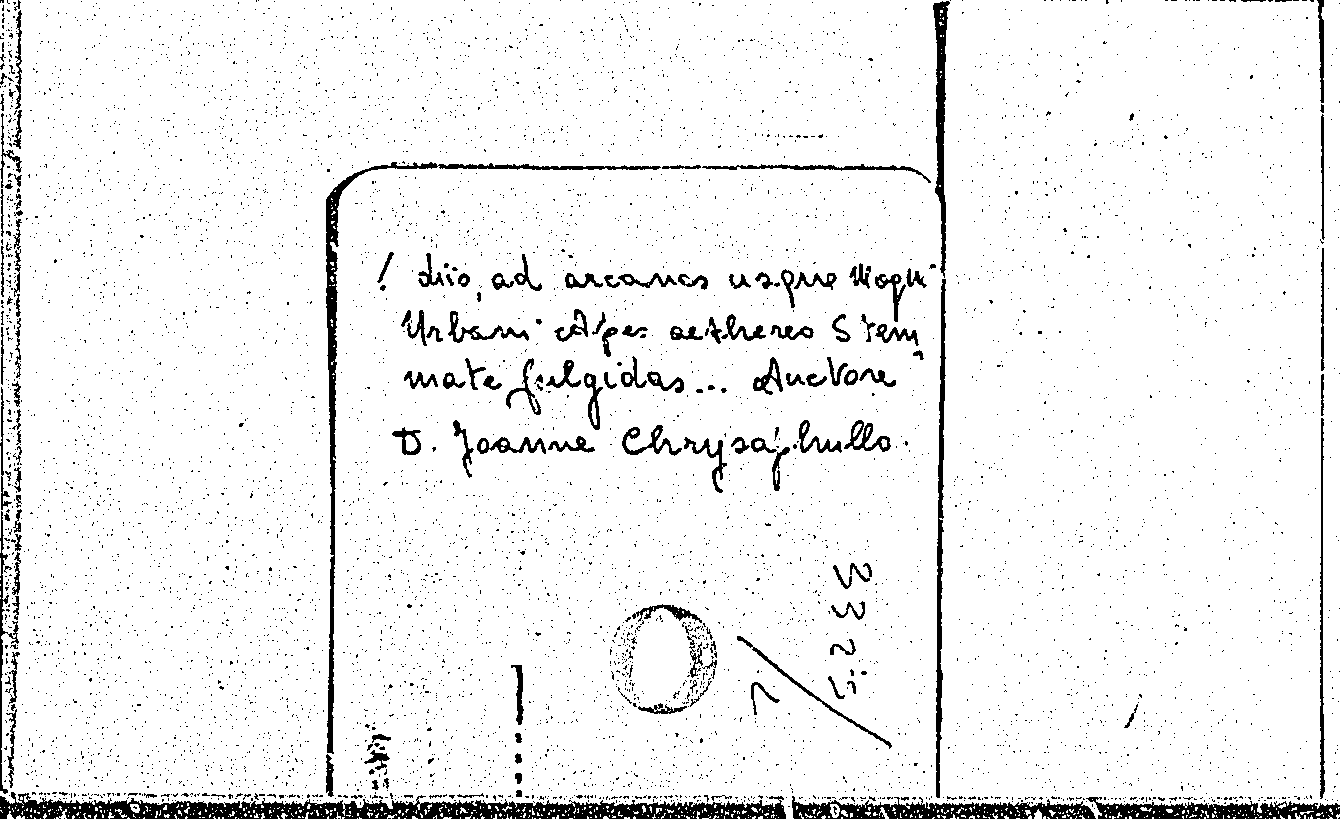 ! diïo, ad arcanas usque Magni
Urbani Alpes aethereo Stem
mate fulgidas... Auctore
D. Joanne Chrysaphullo.